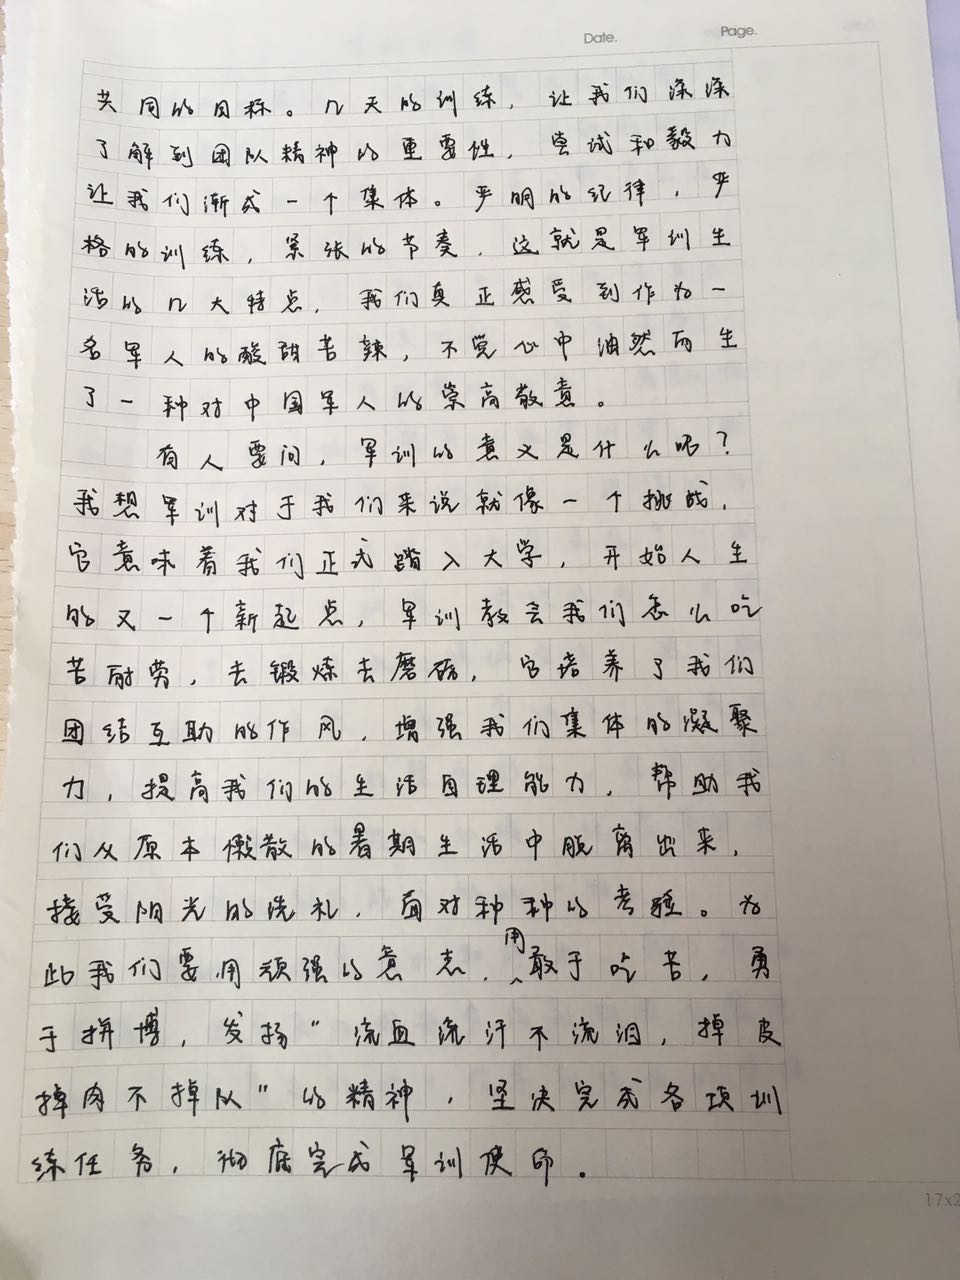 Date.
Page.
共同的目标。几天的训练，让我们深深
了解到团队精神的重要性，尝试和毅力
让我们渐成一个集体。严明的纪律，严
格的训练，紧张的节奏，这就是军训生
活的几大特点，我们真正感受到作为一
名军人的酸甜苦辣，不觉心中油然而生
了一种对中国军人的崇高敬意。
有人要问，军训的意义是什么呢？
我想军训对于我们来说就像一个挑战，
它意味着我们正式踏入大学，开始人生
的又一个新起点，军训教会我们怎么吃
苦耐劳，去锻炼去磨砺，它培养了我们
团结互助的作风，增强我们集体的凝聚
力，提高我们的生活自理能力，帮助我
们从原本懒散的暑期生活中脱离出来，
接受阳光的洗礼，面对种种的考验。为
此我们要用顽强的意志，用敢于吃苦，勇
于拼博，发扬“流血流汗不流泪，掉皮
掉肉不掉队”的精神，坚决完成各项训
练任务，彻底完成军训使命。
17x2